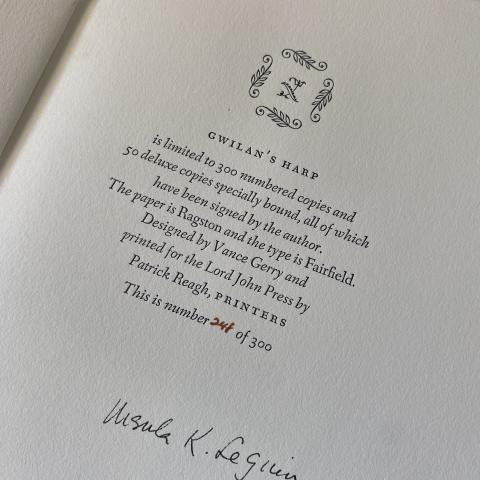 GWILAN'S HARP
is limited to 300 numbered copies and
50 deluxe copies specially bound, all of which
have been signed by the author.
The paper is Ragston and the type is Fairfield.
Designed by Vance Gerry and
printed for the Lord John Press by
Patrick Reagh, PRINTERS
This is number of 300
Ursula K. Le Guin